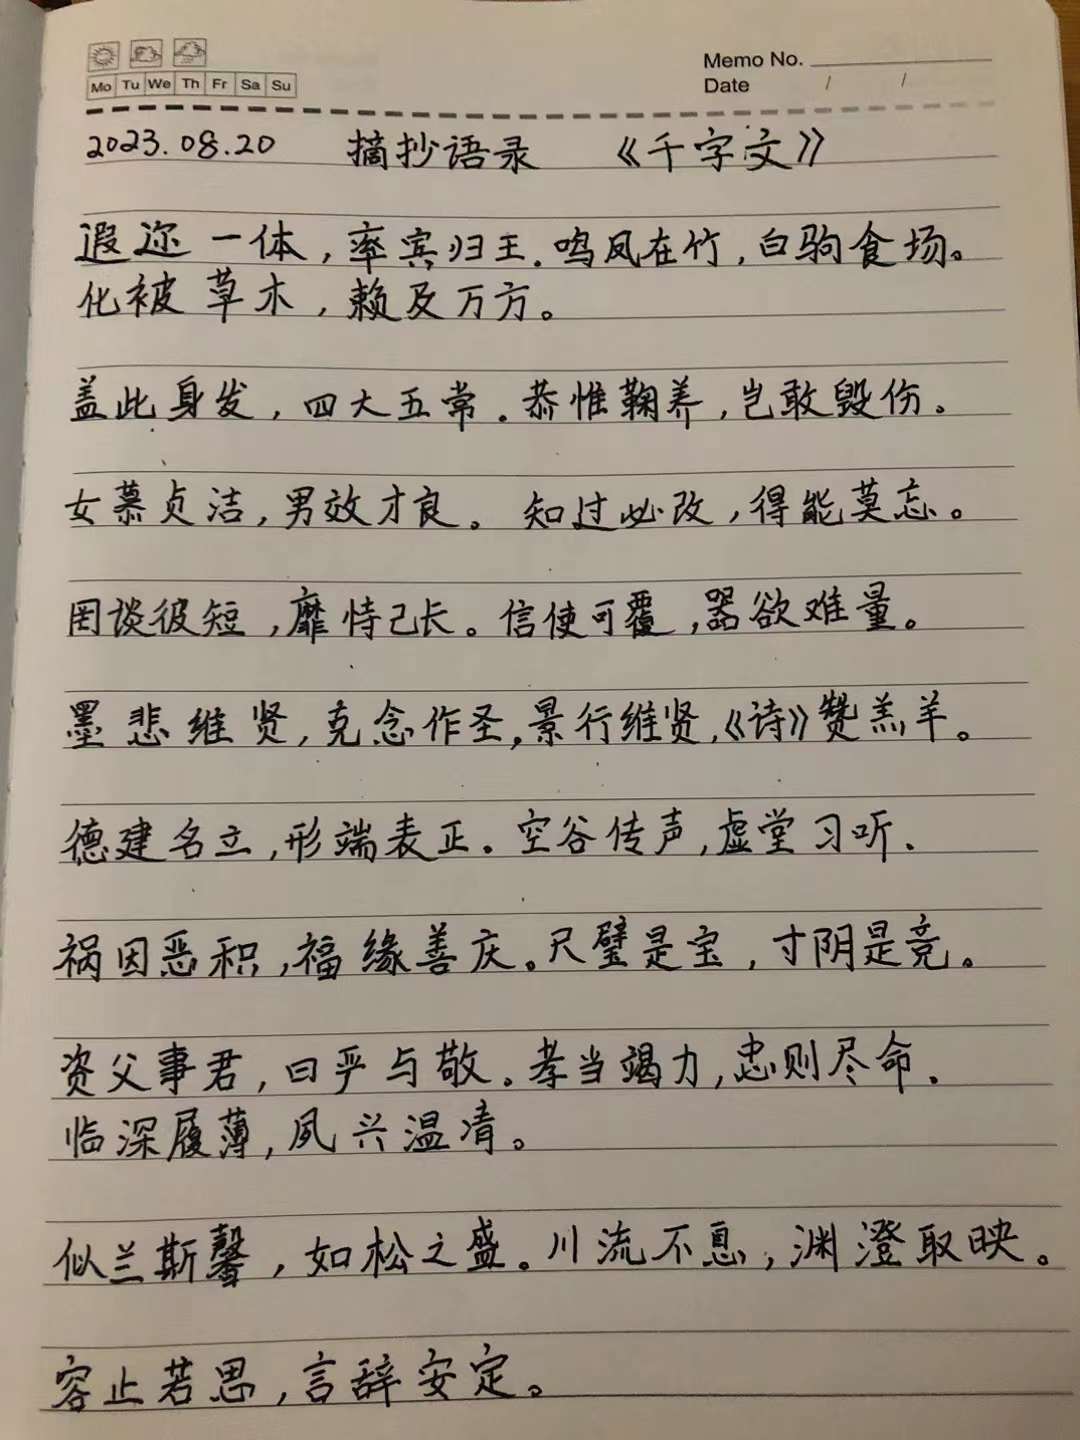 Mo Tu We Th Fr Sa Su
Memo No.
Date / /
2023.08.20 摘抄语录 《千字文》
遐迩一体,率宾归王.鸣凤在竹,白驹食场。
化被草木,赖及万方。
盖此身发,四大五常.恭惟鞠养,岂敢毁伤。
女慕贞洁,男效才良。知过必改,得能莫忘。
罔谈彼短,靡恃己长。信使可覆,器欲难量。
墨悲维贤,克念作圣,景行维贤,《诗》赞羔羊。
德建名立,形端表正.空谷传声,虚堂习听.
祸因恶积,福缘善庆。尺璧是宝,寸阴是竞。
资父事君,曰乎与敬。孝当竭力,忠则尽命.
临深履薄,夙兴温凊。
似兰斯馨,如松之盛。川流不息,渊澄取映。
容止若思,言辞安定。